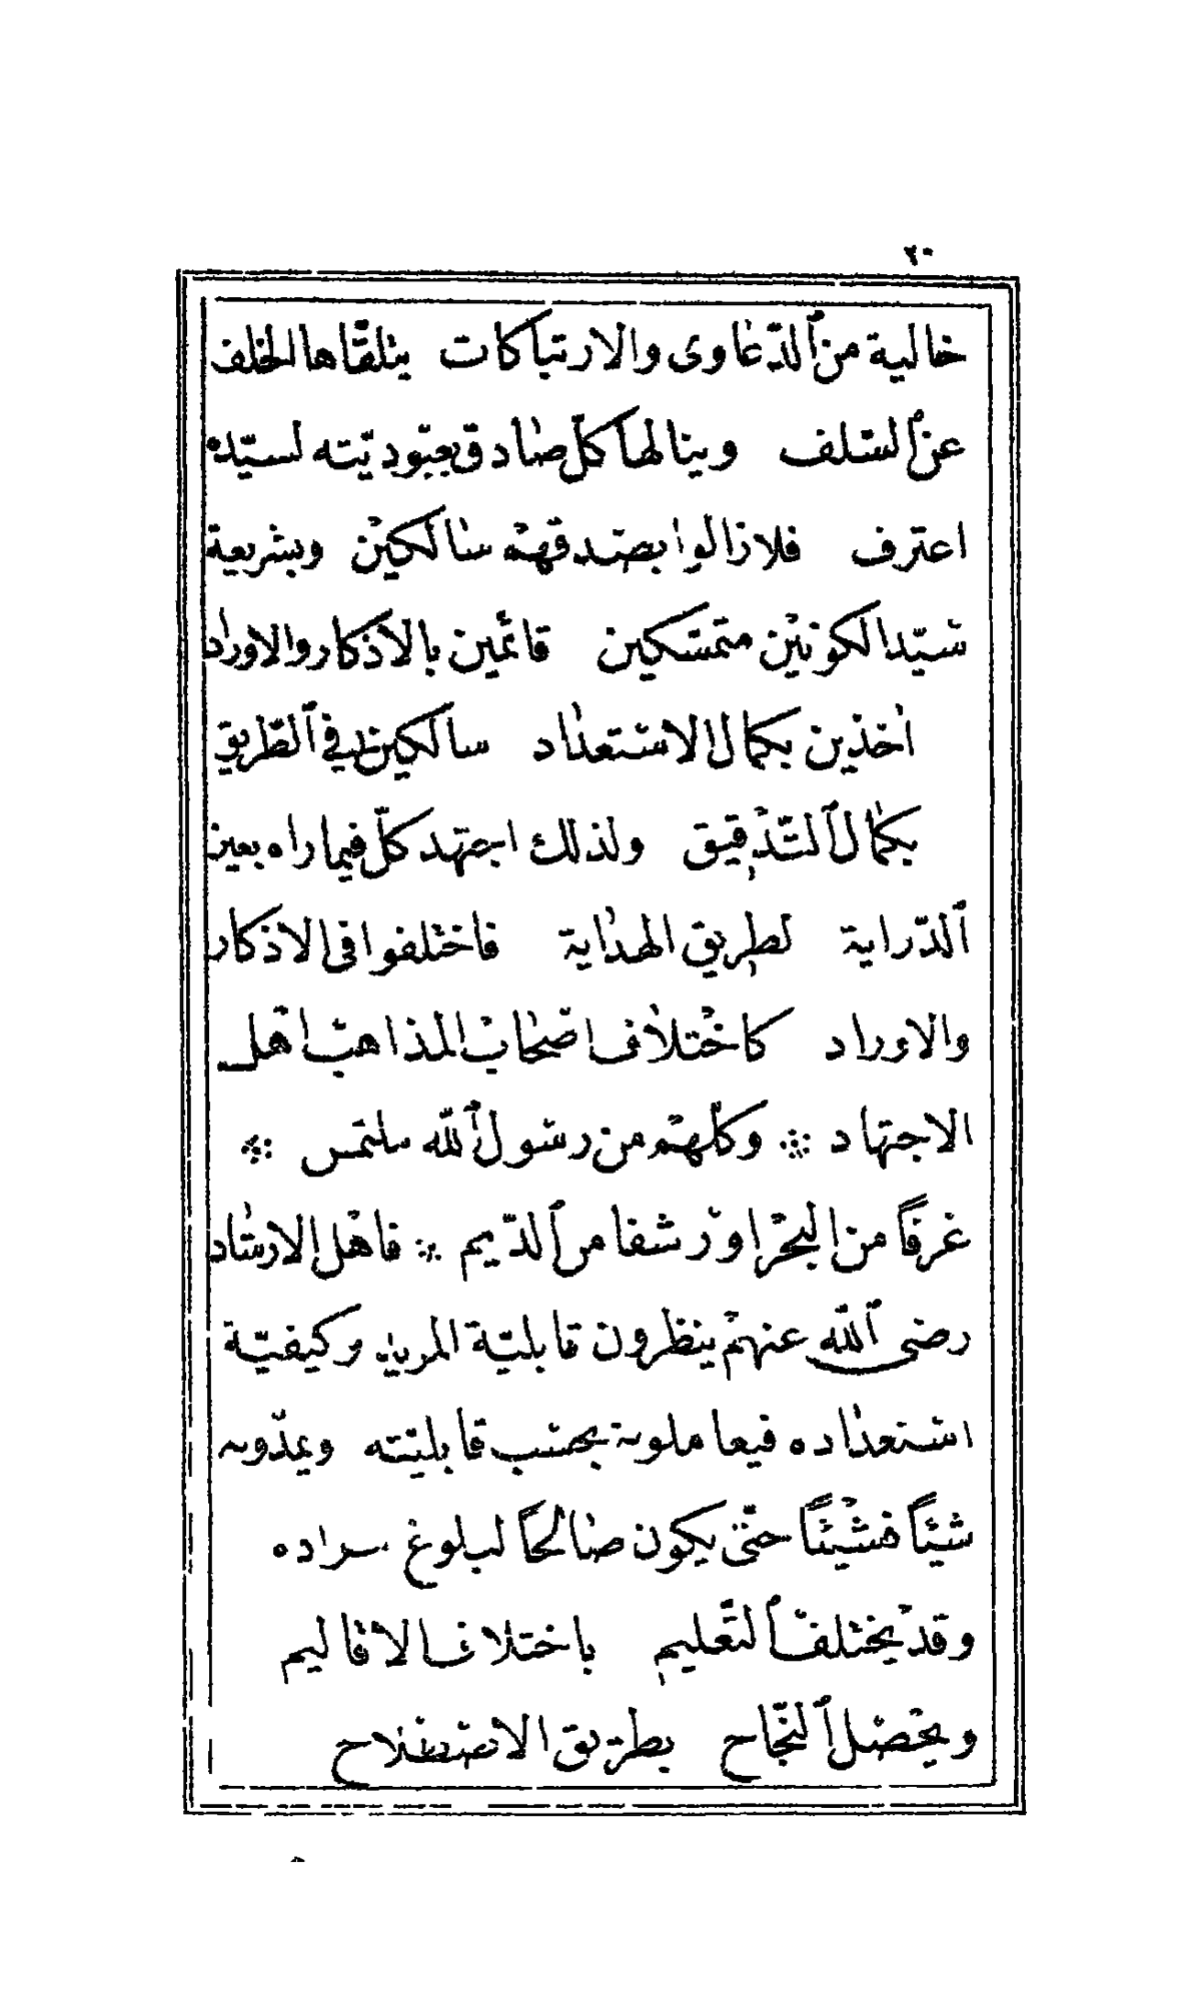 ٢٠
خالية من ٱلدّعاوى والارتباكات يتلقّاها الخلف
عن ٱلسّلف وينالها كلّ صادق بعبّوديّته لسيّده
اعترف فلازالوا بصدقهم سالكين وبشريعة
سيّد الكونين متمسّكين قائمين بالاذكار والاوراد
اٰخذين بكمال الاستعداد سالكين في ٱلطّريق
بكمال ٱلتّدقيق ولذلك اجتهد كلّ فيما راه بعين
ٱلدّراية لطريق الهداية فاختلفوا في الاذكار
والاوراد كاختلاف اصحاب المذاهب اهل
الاجتهاد ※ وكلّهم من رسول ٱللّه ملتمس ※
غرفًا من البحر او رشفا من ٱلدّيم ※ فاهل الارشاد
رضى ٱللّه عنهم ينظرون قابليّة المريد وكيفيّة
استعداده فيعاملونه بحسب قابليّته ويمدّونه
شيئًا فشيئًا حتّى يكون صالحًا لبلوغ مراده
وقد يختلف ٱلتّعليم باختلاف الاقاليم
ويحصل ٱلنّجاح بطريق الاصطلاح